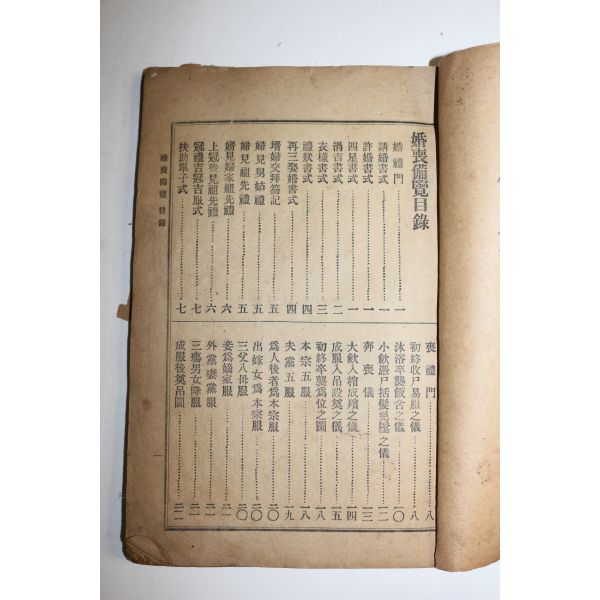 婚喪備覽目錄
婚禮門……一
請婚書式……一
許婚書式……一
四星書式……一
涓吉書式……二
衣樣書式……三
禮狀書式……四
再三娶婚書式……四
壻婦交拜笏記……五
婦見舅姑禮……五
婦見祖先禮……五
壻見婦家祖先禮……六
上冠後見祖先禮……六
冠禮吉冠吉服式……七
扶助單子式……七
喪禮門……八
初終收尸易服之儀……八
沐浴卒襲飯含之儀……一〇
小斂憑尸括髮免髽之儀……一二
奔喪儀……一三
大斂入棺成殯之儀……一四
成服入吊設奠之儀……一五
初終卒襲爲位之圖……一八
本宗五服……一八
夫黨五服……一九
爲人後者爲本宗服……二〇
出嫁女爲本宗服……二〇
三父八母服……二〇
妾爲嫡家服……二一
外黨妻黨服……二一
三殤男女降服……二一
成服後奠吊圖……二二
婚喪備覽 目錄
一